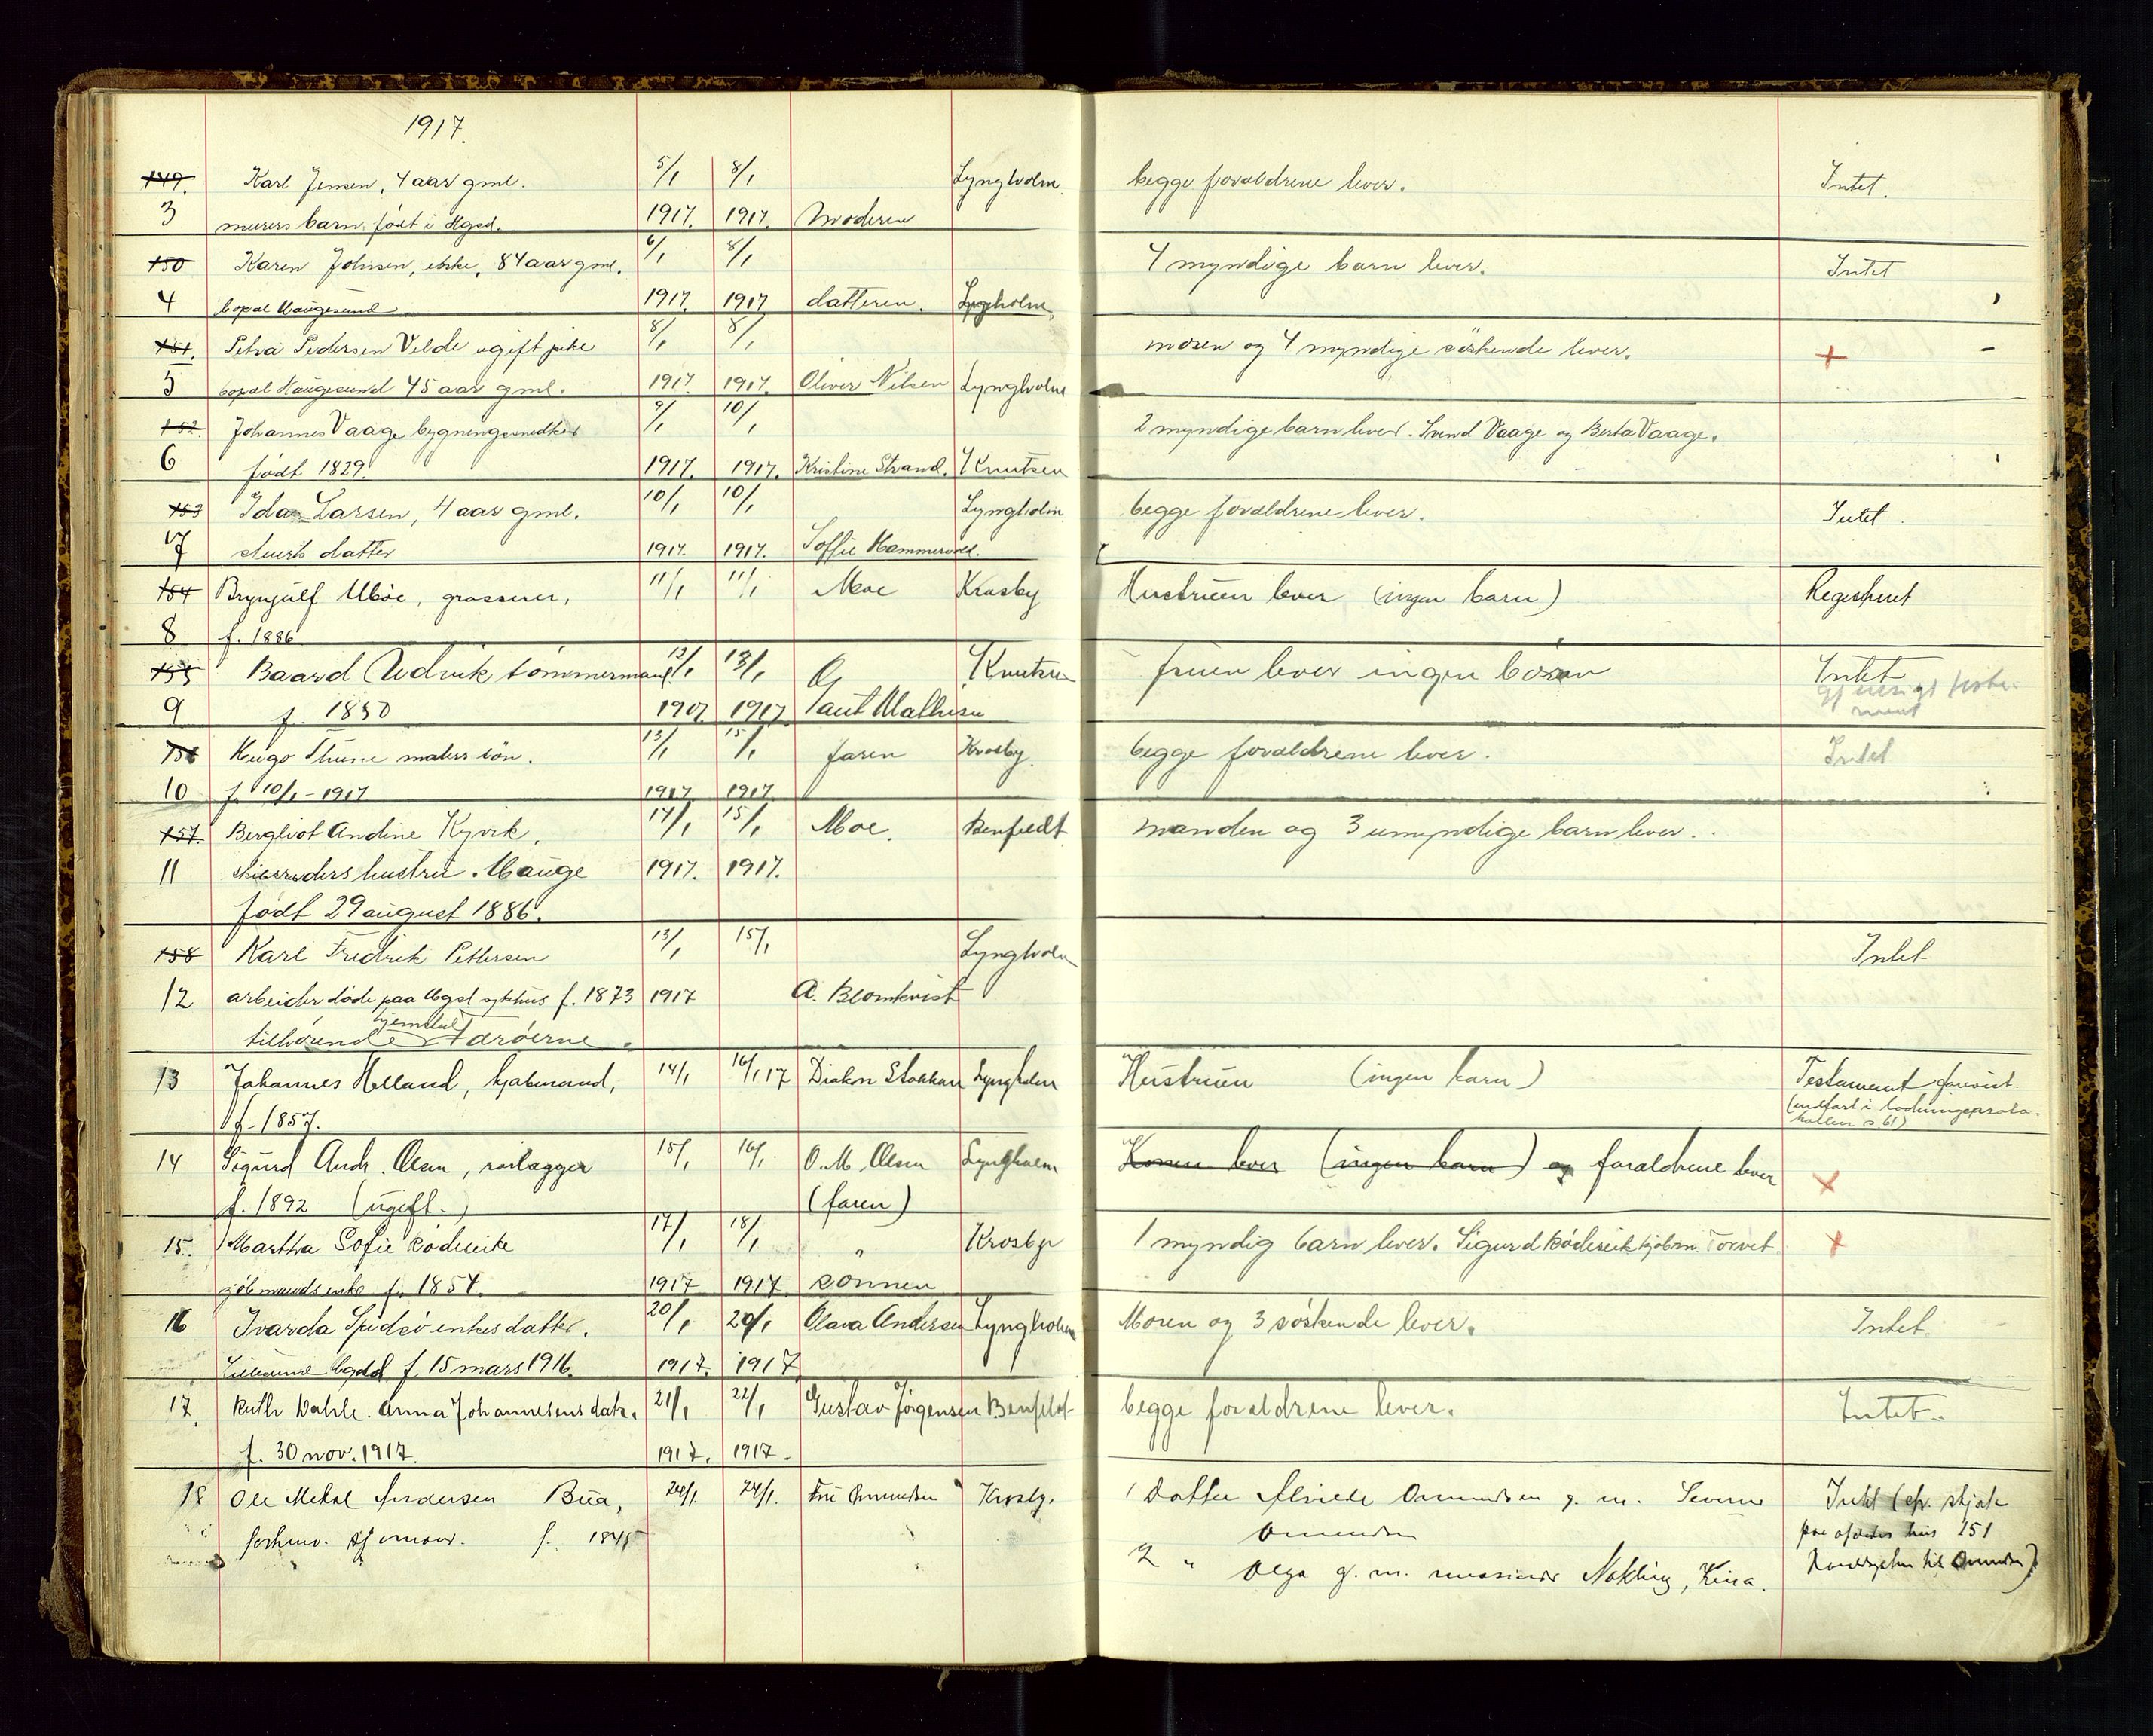 1917.
149. Karl Jensen, 4 aar gml. 5/1 8/1 Lyngholm. begge forældrene lever. Intet.
3 murers barn, født i Hgsd. 1917. 1917. Moderen
150 Karen Johnsen, enke, 84 aar gml. 6/1 8/1 4 myndige barn lever. Intet
4 bopæl Haugesund 1917. 1917 datteren. Lyngholm
151. Petra Pedersen Velde ugift pike 8/1 8/1 moren og 4 myndige søskende lever. +
5 bopæl Haugesund 45 aar gml. 1917 1917. Oliver Nilsen Lyngholm
152. Johannes Vaage bygningssnedker 9/1 10/1 2 myndige barn lever. Svend Vaage og Berta Vaage.
6 født 1829. 1917. 1917. Kristine Strand. Knutsen
153 Ida Larsen, 4 aar gml. 10/1 10/1 Lyngholm begge forældrene lever. Intet.
7 datter 1917. 1917. Soffie Hammervold.
154 Brynjulf Moe, grosserer, 11/1 11/1 Moe Krosby Hustruen lever (ingen barn) Registreret
8 f. 1886
155 Baard tømmermand 13/1 13/1 Knutsen fruen lever ingen børn Intet
9 f. 1850 1907 1917 Mathisen
156 Hugo Thune malers søn. 13/1 15/1 faren Krosby. begge forældrene lever. Intet
10 f. 10/1-1917 1917 1917
157. Bergliot Andine Kyvik. 14/1 15/1 Moe. Benfeldt manden og 3 umyndige barn lever.
11 skibsreders hustru. Hauge 1917. 1917.
født 29 august 1886.
158 Karl Fredrik Pettersen 13/1 15/1 Lyngholm Intet
12 arbeider døde paa Hgsd sykhus f. 1873 1917 A. Blomkvist
hjemsted
tilhørende Færøerne.
13 Johannes Helland, kjøbmand, 14/1 16/1 17 Diakon Stakkan Lyngholm Hustruen (ingen barn) Testament forevist.
f. 1857. (indført i lodningsproto-
kollen s 61)
14 Sigurd Andr. Olsen, rørlægger 15/1 16/1 O. M. Olsen Lyngholm Konen lever (ingen barn) og foraldrene lever +
f. 1892 (ugift.) (faren)
15. Martha Sofie Rødseike 17/1 18/1 " Krosby 1 myndig barn lever. Sigurd Rødseik kjøbm. Torvet. +
kjøbmands enke f. 1857. 1917 1917 sønnen
16 Ivarda Spidsø enkes datter. 20/1 20/1 Olava Andersen Lyngholm Moren og 3 søskende lever. Intet
f. 15 mars 1916. 1917. 1917
17. Ruth Dahle. Anna Johannesens datr. 21/1 22/1 Gustav Jørgensen Benfeldt begge forældrene lever. Intet.
f. 30 nov. 1917. 1917. 1917.
18 Ole Mekal Andersen Bua, 24/1. 24/1. Fru Omundsen Krosby. 1 Datter Omundsen g. m. Severin Intet (efr. skjøte
forhenv. sjømand. f. 1845 Omundsen paa afdødes hus 151
2 " Olga g. m. missionær Nøkling, Kina. til Omundsen)